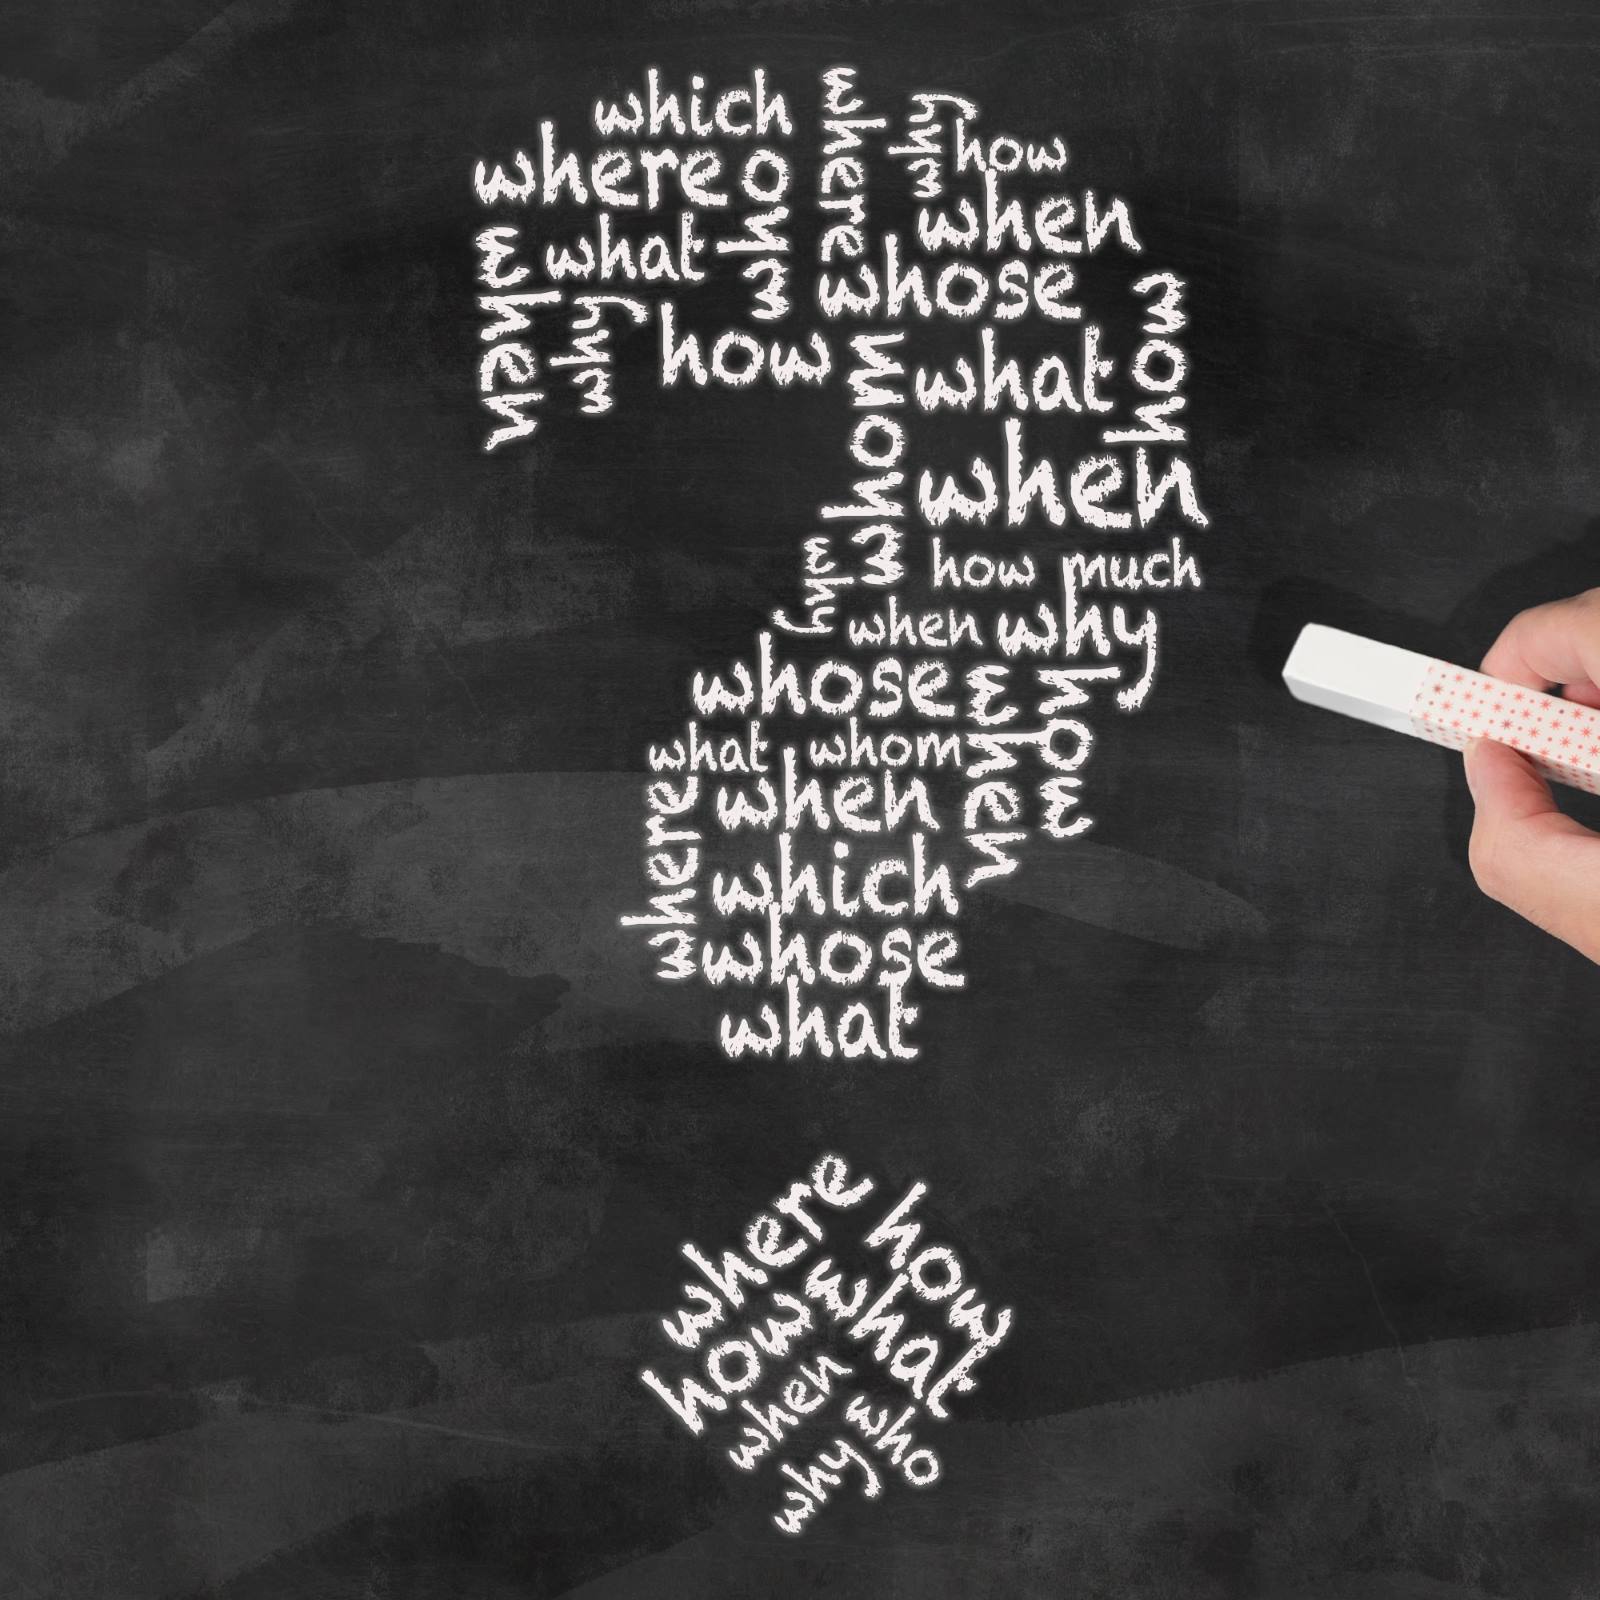 which
where
why
how
where
who
when
when
what
whose
why
how
how
whom
what
when
why
how much
when
why
whose
when
how
what
whom
where
when
which
whose
what
where
how
how
what
when
who
why